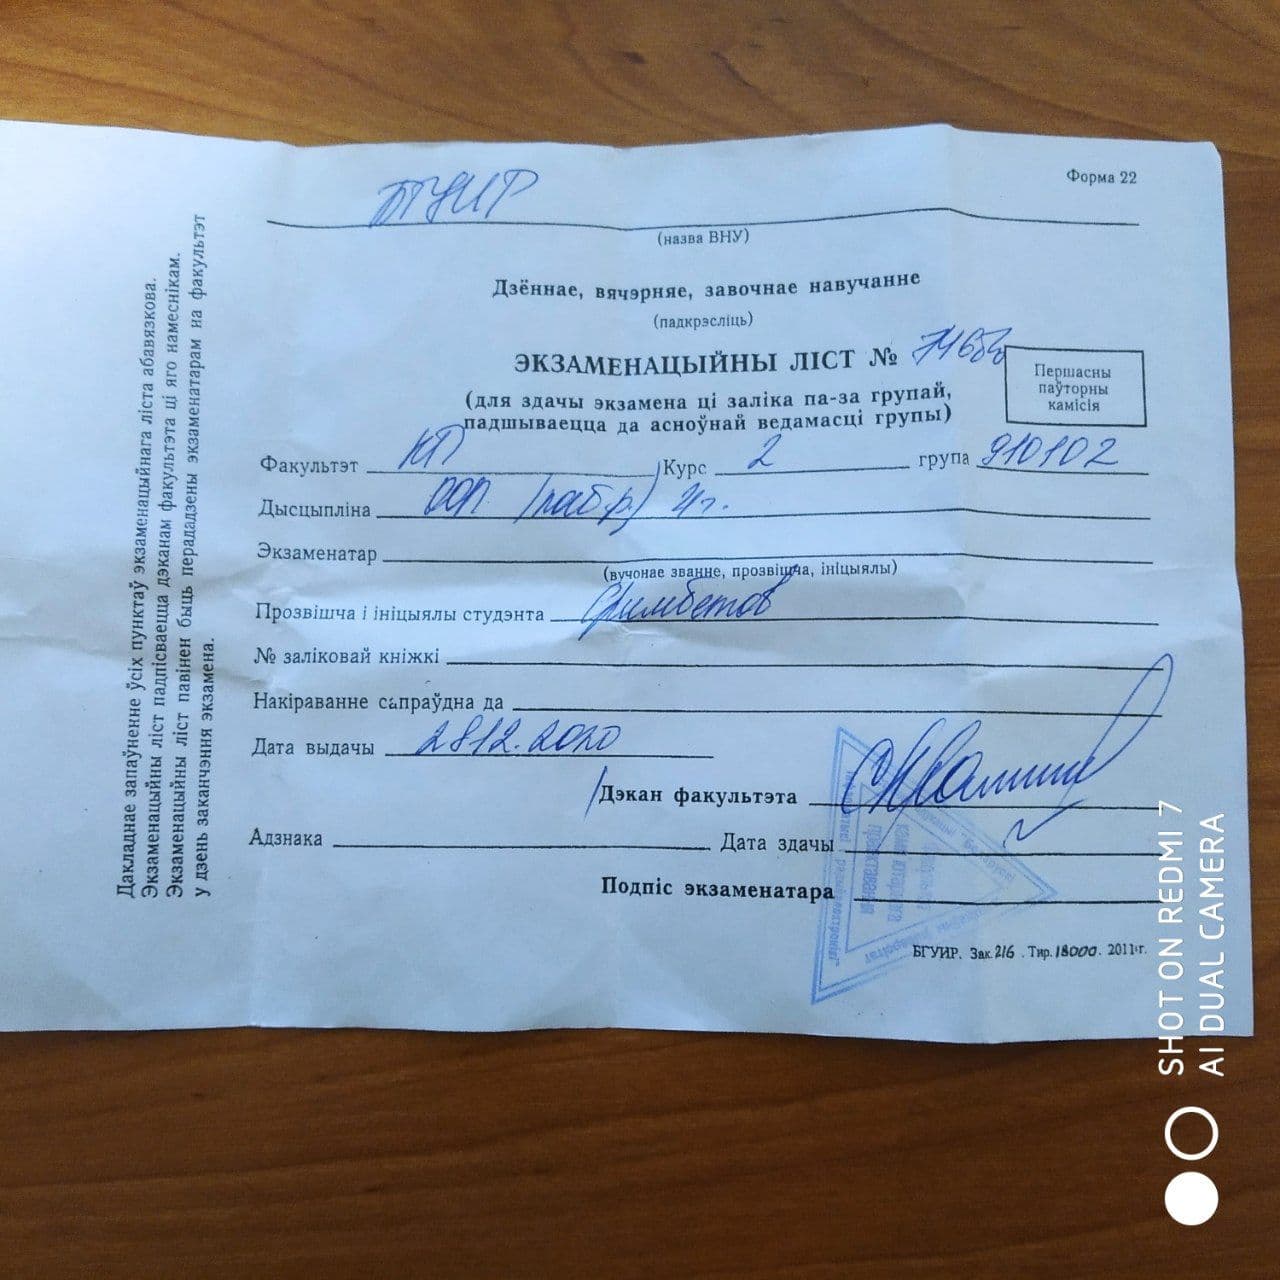 БГУИР
Форма 22
(назва ВНУ)
Дзённае, вячэрняе, завочнае навучанне
(падкрэсліць)
ЭКЗАМЕНАЦЫЙНЫ ЛІСТ №
Першасны
паўторны
камісія
(для здачы экзамена ці заліка па-за групай,
падшываецца да асноўнай ведамасці групы)
Факультэт КП Курс 2 група 910102
Дысцыпліна ООП
Экзаменатар
(вучонае званне, прозвішча, ініцыялы)
Прозвішча і ініцыялы студэнта
№ заліковай кніжкі
Накіраванне сапраўдна да
Дата выдачы 28.12.2020
Дэкан факультэта
Адзнака Дата здачы
Подпіс экзаменатара
БГУИР. Зак. 216 . Тир. 18000. 2011 г.
Дакладнае запаўненне ўсіх пунктаў экзаменацыйнага ліста абавязкова.
Экзаменацыйны ліст падпісваецца дэканам факультэта ці яго намеснікам.
Экзаменацыйны ліст павінен быць перададзены экзаменатарам на факультэт
у дзень заканчэння экзамена.
SHOT ON REDMI 7
AI DUAL CAMERA